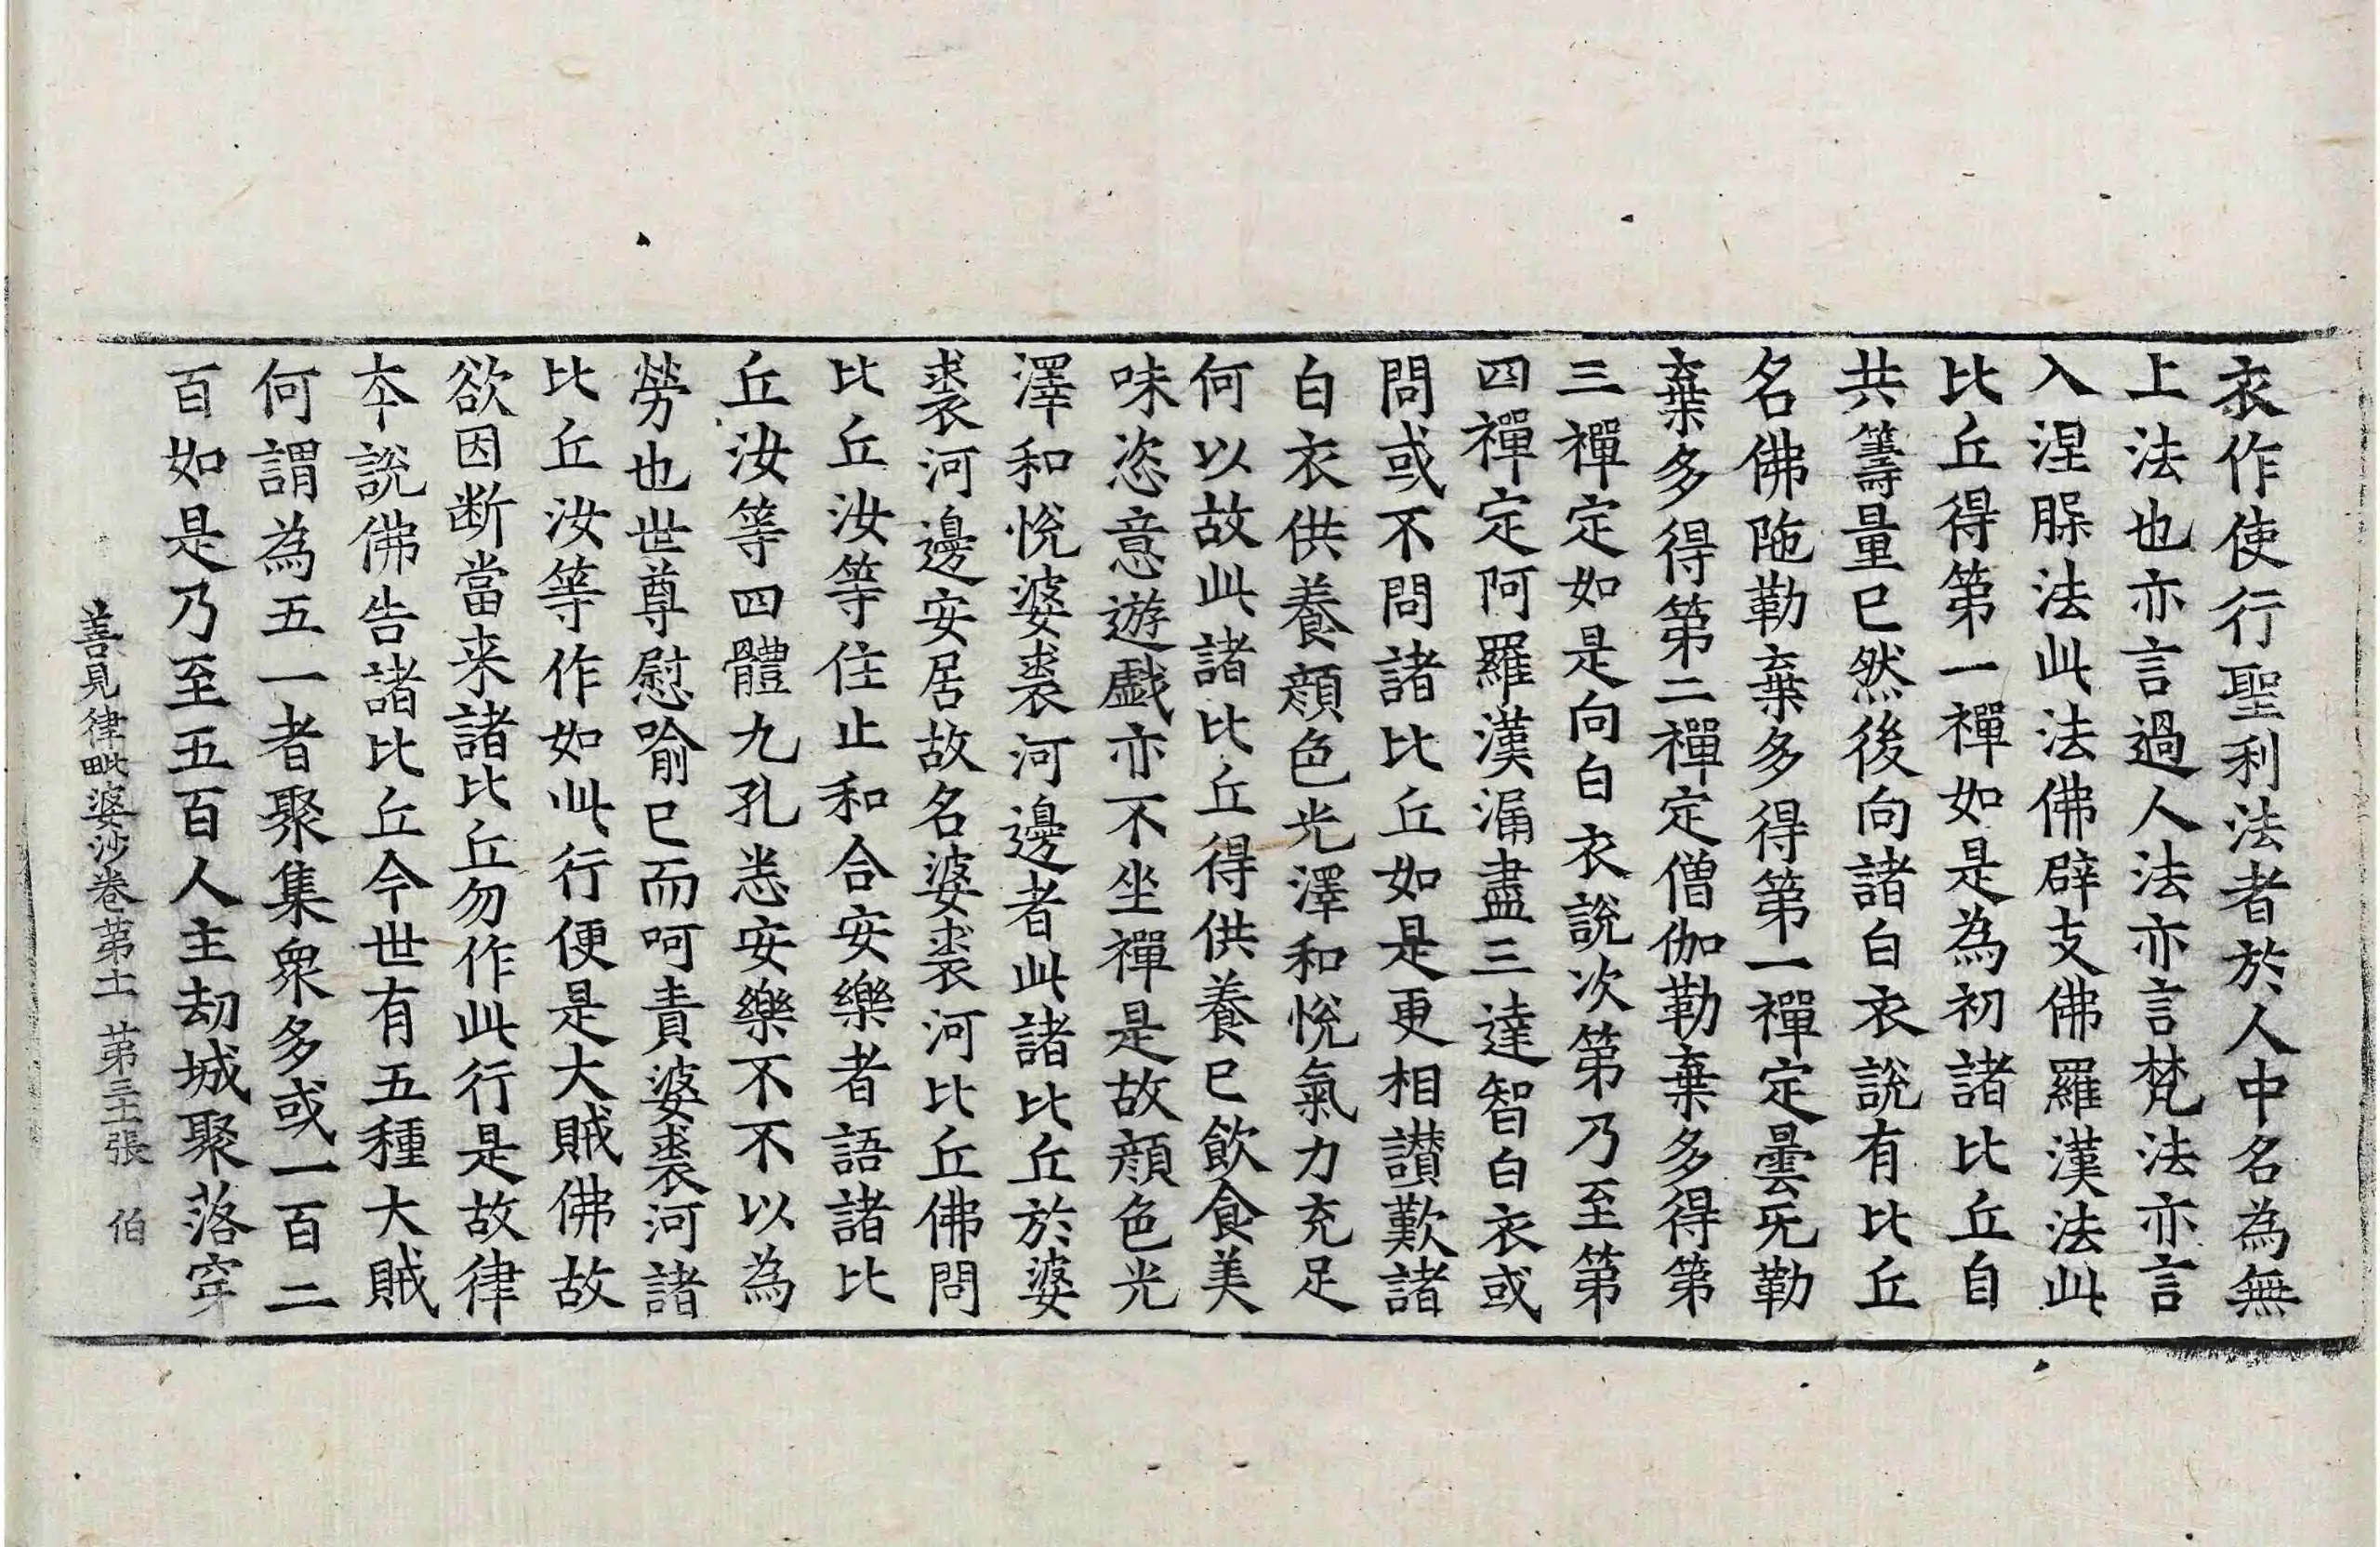 衣作使行聖利法者於人中名為無
上法也亦言過人法亦言梵法亦言
入涅槃法此法佛辟支佛羅漢法此
比丘得第一禪如是為初諸比丘自
共籌量已然後向諸白衣說有比丘
名佛陁勒棄多得第一禪定曇无勒
棄多得第二禪定僧伽勒棄多得第
三禪定如是向白衣說次第乃至第
四禪定阿羅漢漏盡三達智白衣或
問或不問諸比丘如是更相讃歎諸
白衣供養顏色光澤和悅氣力充足
何以故此諸比丘得供養已飲食美
味恣意遊戲亦不坐禪是故顏色光
澤和悅婆裘河邊者此諸比丘於婆
裘河邊安居故名婆裘河比丘佛問
比丘汝等住止和合安樂者語諸比
丘汝等四體九孔悉安樂不不以為
勞也世尊慰喻已而呵責婆裘河諸
比丘汝等作如此行便是大賊佛故
欲因断當来諸比丘勿作此行是故律
夲說佛告諸比丘今世有五種大賊
何謂為五一者聚集衆多或一百二
百如是乃至五百人主劫城聚落穿
善見律毗婆沙卷第十一 第三十二張 伯